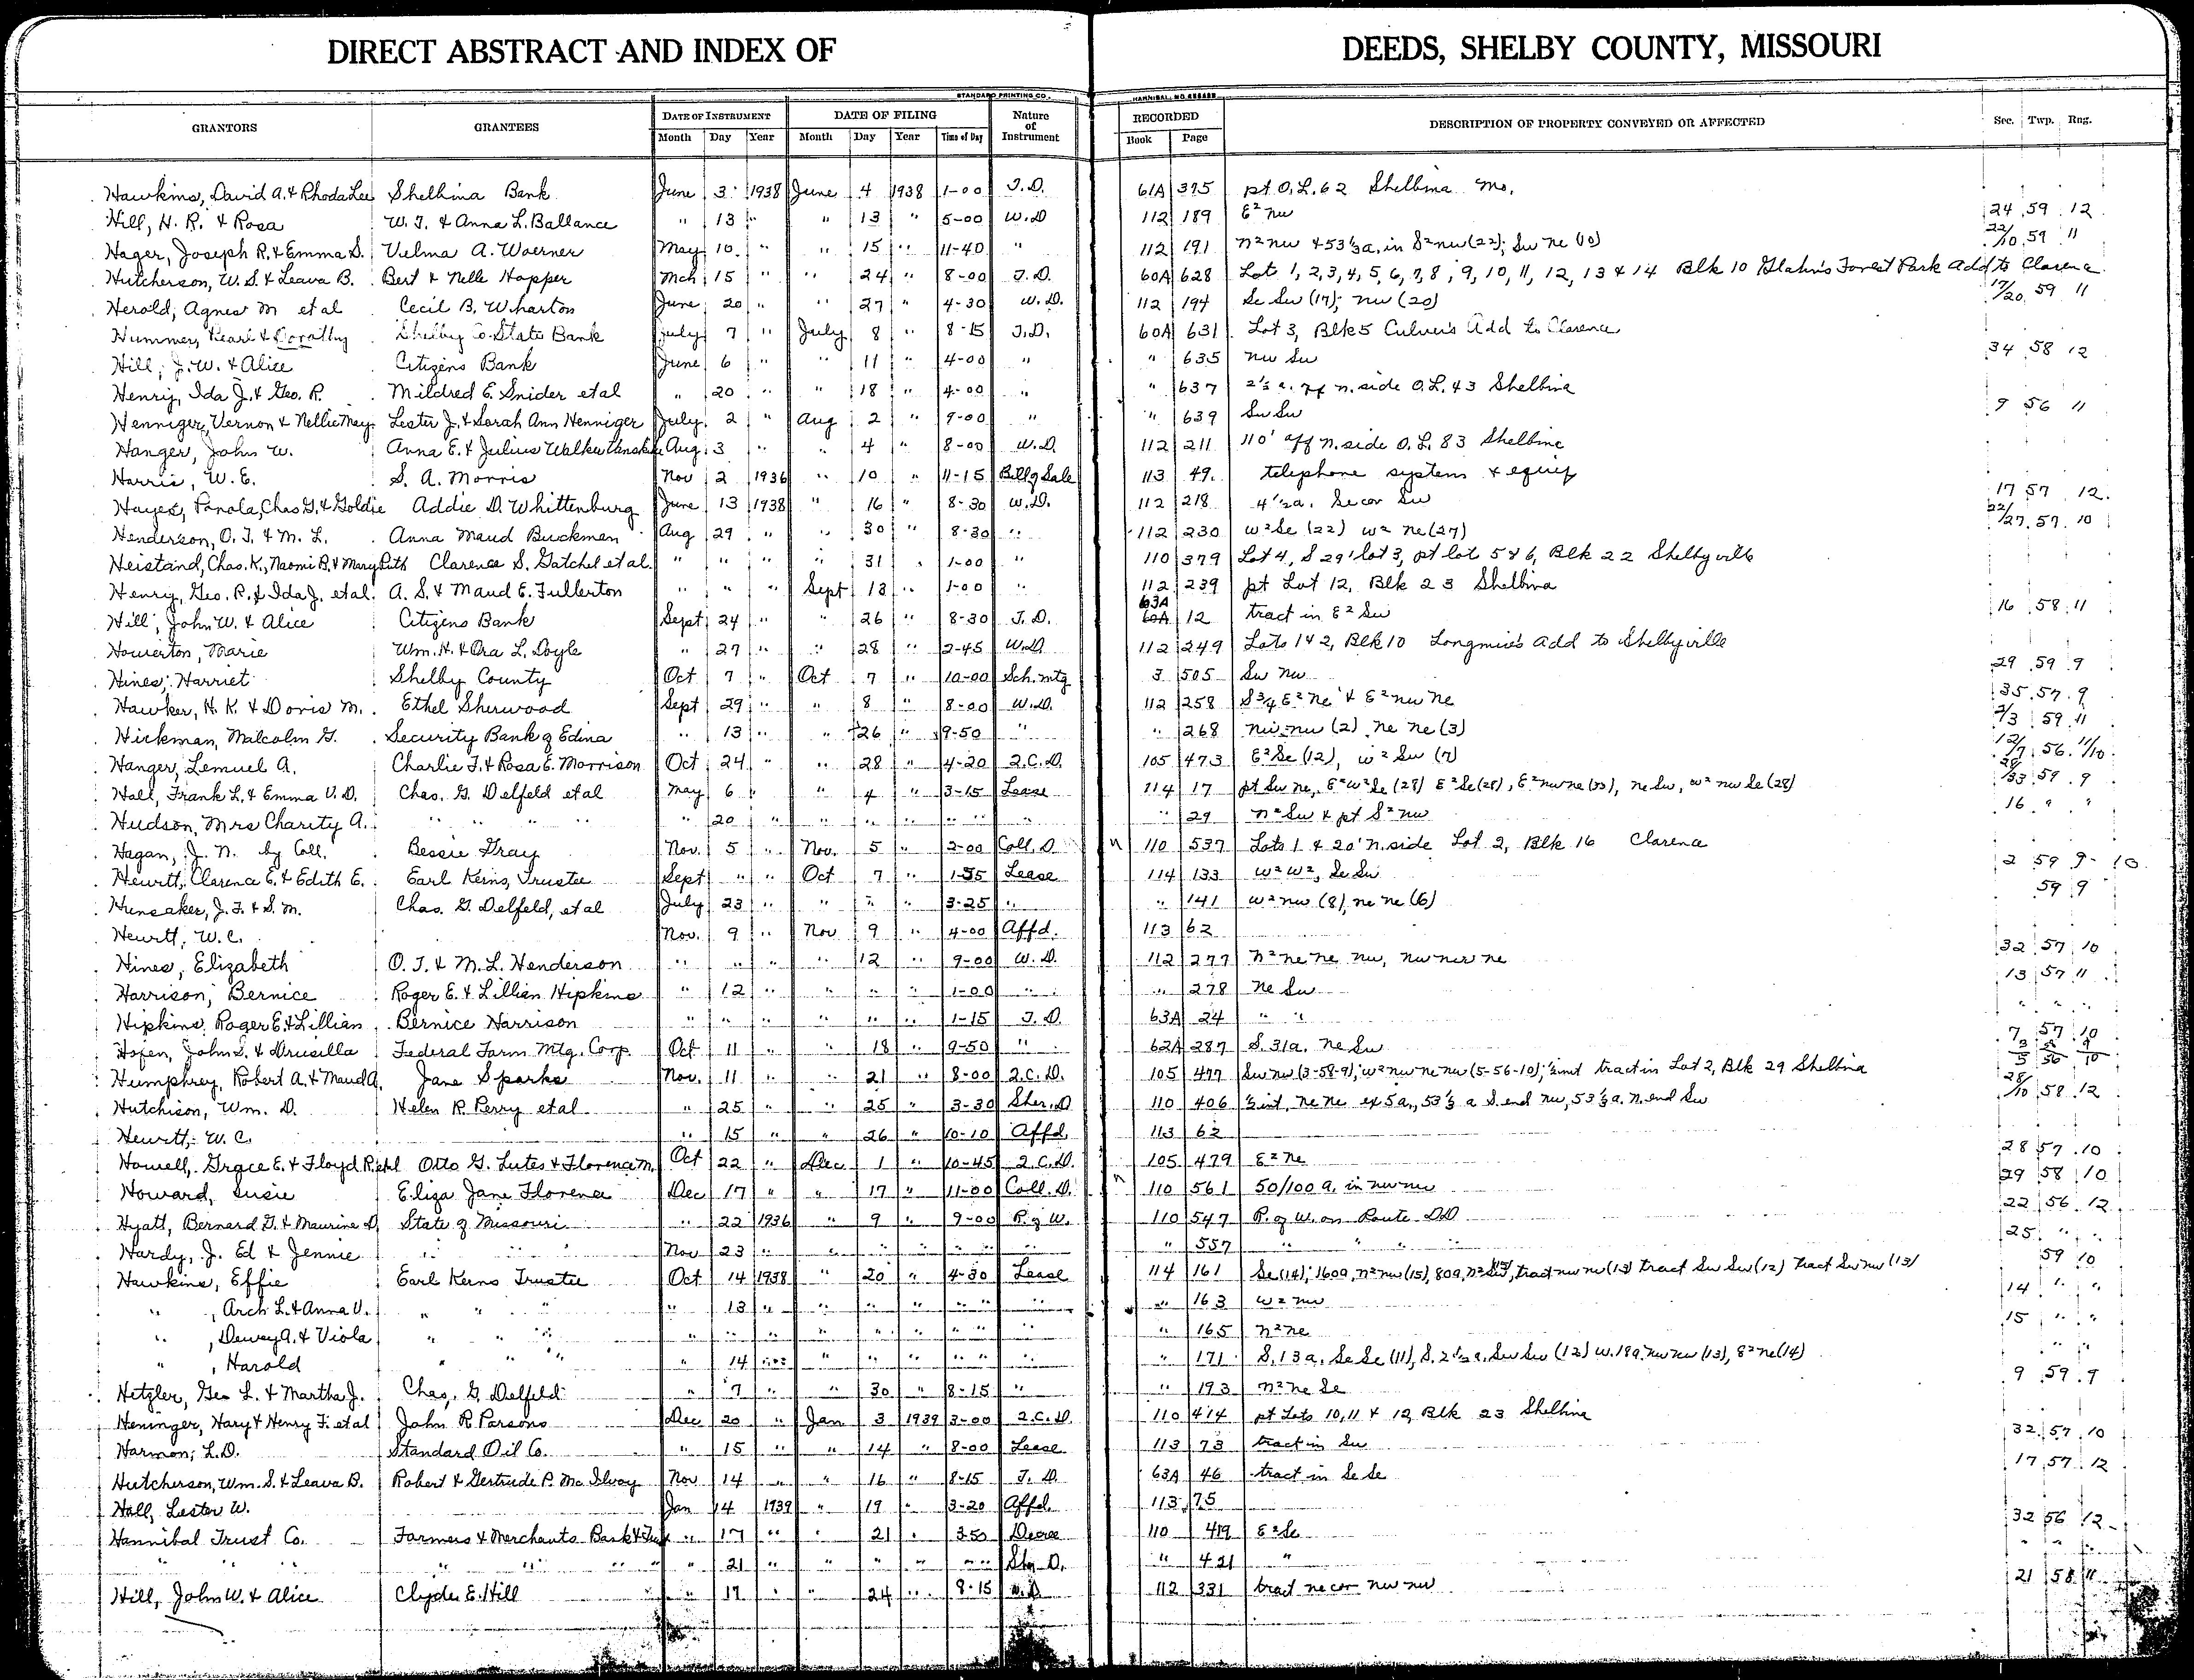 DIRECT ABSTRACT AND INDEX OF DEEDS, SHELBY COUNTY, MISSOURI
STANDARD PRINTING CO. HANNIBAL, MO.
GRANTORS GRANTEES DATE OF INSTRUMENT DATE OF FILING Nature of Instrument RECORDED DESCRIPTION OF PROPERTY CONVEYED OR AFFECTED Sec. Twp. Rng.
Month Day Year Month Day Year Time of Day Book Page
Hawkins, David A. & Rhoda Lee Shelbina Bank June 3 1938 June 4 1938 1-00 T.D. 61A 375 pt O.L. 62 Shelbina Mo.
Hill, H. R. & Rosa W. T. & Anna L. Ballance " 13 " " 13 " 5-00 W.D 112 189 E² nw 24 59 12
Hager, Joseph R. & Emma S. Velma A. Woerner May 10 " " 15 " 11-40 " 112 191 n² nw & 53⅓a. in S² nw (22); Sw ne (10) 22/10 59 11
Hutcherson, W. S. & Leava B. Bert & Nelle Hopper Mch 15 " " 24 " 8-00 T.D. 60A 628 Lot 1, 2, 3, 4, 5, 6, 7, 8, 9, 10, 11, 12, 13 & 14 Blk 10 Glahn's Forest Park Add to Clarence
Herold, Agnes M et al Cecil B. Wharton June 20 " " 27 " 4-30 W.D. 112 194 Se Sw (17); nw (20) 17/20 59 11
Hummer, Pearl & Dorathy Shelby Co. State Bank July 7 " July 8 " 8-15 T.D. 60A 631 Lot 3, Blk 5 Culver's Add to Clarence
Hill, J. W. & Alice Citizens Bank June 6 " " 11 " 4-00 " " 635 nw Sw 34 58 12
Henry, Ida J. & Geo. R. Mildred E. Snider et al " 20 " " 18 " 4-00 " " 637 2½ a. off n. side O.L. 43 Shelbina
Henniger, Vernon & Nellie May Lester J. & Sarah Ann Henniger July 2 " Aug 2 " 9-00 " " 639 Sw Sw 9 56 11
Hanger, John W. Anna E. & Julius Walker Aug 3 " " 4 " 8-00 W.D. 112 211 110' off n. side O.L. 83 Shelbina
Harris, W. E. S. A. Morris Nov 2 1936 " 10 " 11-15 Bill of Sale 113 49 telephone system & equip
Hayes, Panola, Chas G. & Goldie Addie D. Whittenburg June 13 1938 " 16 " 8-30 W.D. 112 218 4½a. Se cor Sw 17 57 12
Henderson, O. T. & M. L. Anna Maud Buckman Aug 29 " " 30 " 8-30 " 112 230 w² Se (22) w² ne (27) 22/27 57 10
Heistand, Chas. K., Naomi B. & Mary Ruth Clarence S. Gatchel et al. " " " " 31 " 1-00 " 110 379 Lot 4, S 29' lot 3, pt lot 5 & 6, Blk 22 Shelbyville
Henry, Geo. R. & Ida J. et al. A. S. & Maud E. Fullerton " " " Sept 13 " 1-00 " 112 239 pt Lot 12, Blk 23 Shelbina
Hill, John W. & Alice Citizens Bank Sept 24 " " 26 " 8-30 T.D. 63A 60A 12 tract in E² Sw 16 58 11
Howerton, Marie Wm. H. & Ora L. Doyle " 27 " " 28 " 2-45 W.D 112 249 Lots 1 & 2, Blk 10 Longmire's Add to Shelbyville
Hines, Harriet Shelby County Oct 7 " Oct 7 " 10-00 Sch. mtg 3 505 Sw nw 29 59 9
Hawker, H. K. & Doris M. Ethel Sherwood Sept 29 " " 8 " 8-00 W.D. 112 258 S ¾ E² ne & E² nw ne 35 57 9
Hickman, Malcolm G. Security Bank of Edina " 13 " " 26 " 9-50 " " 268 nw nw (2) ne ne (3) 2/3 59 11
Hanger, Lemuel A. Charlie F. & Rosa E. Morrison Oct 24 " " 28 " 4-20 Q.C.D. 105 473 E² Se (12), w² Sw (7) 12/7 56 11/10
Hall, Frank L. & Emma V. D. Chas. G. Delfeld et al May 6 " " 4 " 3-15 Lease 114 17 pt Sw ne, E² w² Se (28) E² Se (28), E² nw ne (33), ne Sw, w² nw Se (28) 28/33 59 9
Hudson, Mrs Charity A. " " " " " 20 " " " " " " " 29 n² Sw & pt S² nw 16 " "
Hagan, J. N. by Coll. Bessie Gray Nov. 5 " Nov. 5 " 2-00 Coll. D. 110 537 Lots 1 & 20' n. side Lot 2, Blk 16 Clarence
Hewitt, Clarence E. & Edith E. Earl Kerns, Trustee Sept " " Oct 7 " 1-35 Lease 114 133 w² w², Se Sw 2 59 9-10
Hunsaker, J. F. & S. M. Chas. G. Delfeld, et al July 23 " " " " 3-25 " " 141 w² nw (8), ne ne (6) 59 9
Hewitt, W. C. Nov. 9 " Nov 9 " 4-00 Affd. 113 62
Hines, Elizabeth O. T. & M. L. Henderson " " " " 12 " 9-00 W.D. 112 277 n² ne ne nw, nw nw ne 32 57 10
Harrison, Bernice Roger E. & Lillian Hipkins " 12 " " " " 1-00 " " 278 ne Sw 13 57 11
Hipkins, Roger E. & Lillian Bernice Harrison " " " " " " 1-15 T.D. 63A 24 " " " " "
Hofen, John S. & Drusilla Federal Farm Mtg. Corp. Oct 11 " " 18 " 9-50 " 62A 287 S. 31a. ne Sw 7 57 10
Humphrey, Robert A. & Maud A. Jane Sparks Nov. 11 " " 21 " 8-00 Q.C.D. 105 477 Sw nw (3-58-9); w² nw ne nw (5-56-10); ½ int tract in Lot 2, Blk 29 Shelbina
Hutchison, Wm. D. Helen R. Perry et al " 25 " " 25 " 3-30 Sher. D 110 406 ½ int, ne ne ex 5a., 53⅓ a S. end nw, 53⅓a. n. end Sw 58 12
Hewitt, W. C. " 15 " " 26 " 10-10 Affd. 113 62
Howell, Grace E. & Floyd R et al Otto G. Lutes & Florence M. Oct 22 " Dec 1 " 10-45 Q.C.D. 105 479 E² ne 28 57 10
Howard, Susie Eliza Jane Florence Dec 17 " " 17 " 11-00 Coll. D. 110 561 50/100 a. in nw nw 29 58 10
Hyatt, Bernard G. & Maurine D. State of Missouri " 22 1936 " 9 " 9-00 R. of W. 110 547 R. of W. on Route DD 22 56 12
Hardy, J. Ed & Jennie " " " Nov 23 " " " " " " " 557 " " " " 25 " "
Hawkins, Effie Earl Kerns Trustee Oct 14 1938 " 20 " 4-30 Lease 114 161 Se (14), 160a, n² nw (15), 80a, n² Sw, tract nw nw (13) tract Sw Sw (12) tract Sw nw (13) 59 10
" , Arch L. & Anna V. " " " " 13 " " " " " " " 163 w² nw 14 " "
" , Dewey A. & Viola " " " " " " " " " " " " 165 n² ne 15 " "
" , Harold " " " " 14 " " " " " " " 171 S. 13 a. Se Se (11), S. 2½ a. Sw Sw (12) w. 18a. nw nw (13), E² ne (14) " "
Hetzler, Geo L. & Martha J. Chas. G. Delfeld " 7 " " 30 " 8-15 " " 193 n² ne Se 9 59 9
Heninger, Mary & Henry F. et al John R. Parsons Dec 20 " Jan 3 1939 3-00 Q.C.D. 110 414 pt Lots 10, 11 & 12, Blk 23 Shelbina
Harmon, L. D. Standard Oil Co. " 15 " " 14 " 8-00 Lease 113 73 tract in Sw 32 57 10
Hutcherson, Wm. S. & Leava B. Robert & Gertrude P. McIlvoy Nov 14 " " 16 " 8-15 T.D. 63A 46 tract in Se Se 17 57 12
Hall, Lester W. Jan 14 1939 " 19 " 3-20 Affd. 113 75
Hannibal Trust Co. Farmers & Merchants Bank & " 17 " " 21 " 3-50 Decree 110 419 E² Se 32 56 12
" " " " " " " " 21 " " " " " " D. " 421 " " " "
Hill, John W. & Alice Clyde E. Hill " 17 " " 24 " 8-15 W.D 112 331 tract ne cor nw nw 21 58 11